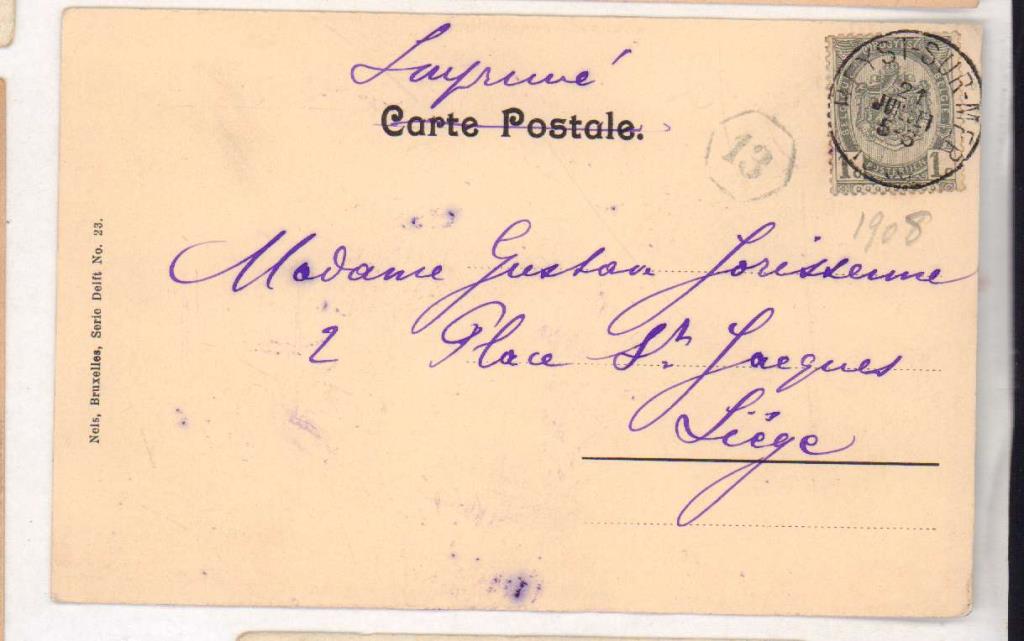 Imprimé
Carte Postale.
13
HEYST-SUR-MER
21
1 1
1908
Madame Gustave Jorissenne
2 Place St. Jacques
Liége
Nels, Bruxelles, Serie Delft No. 23.